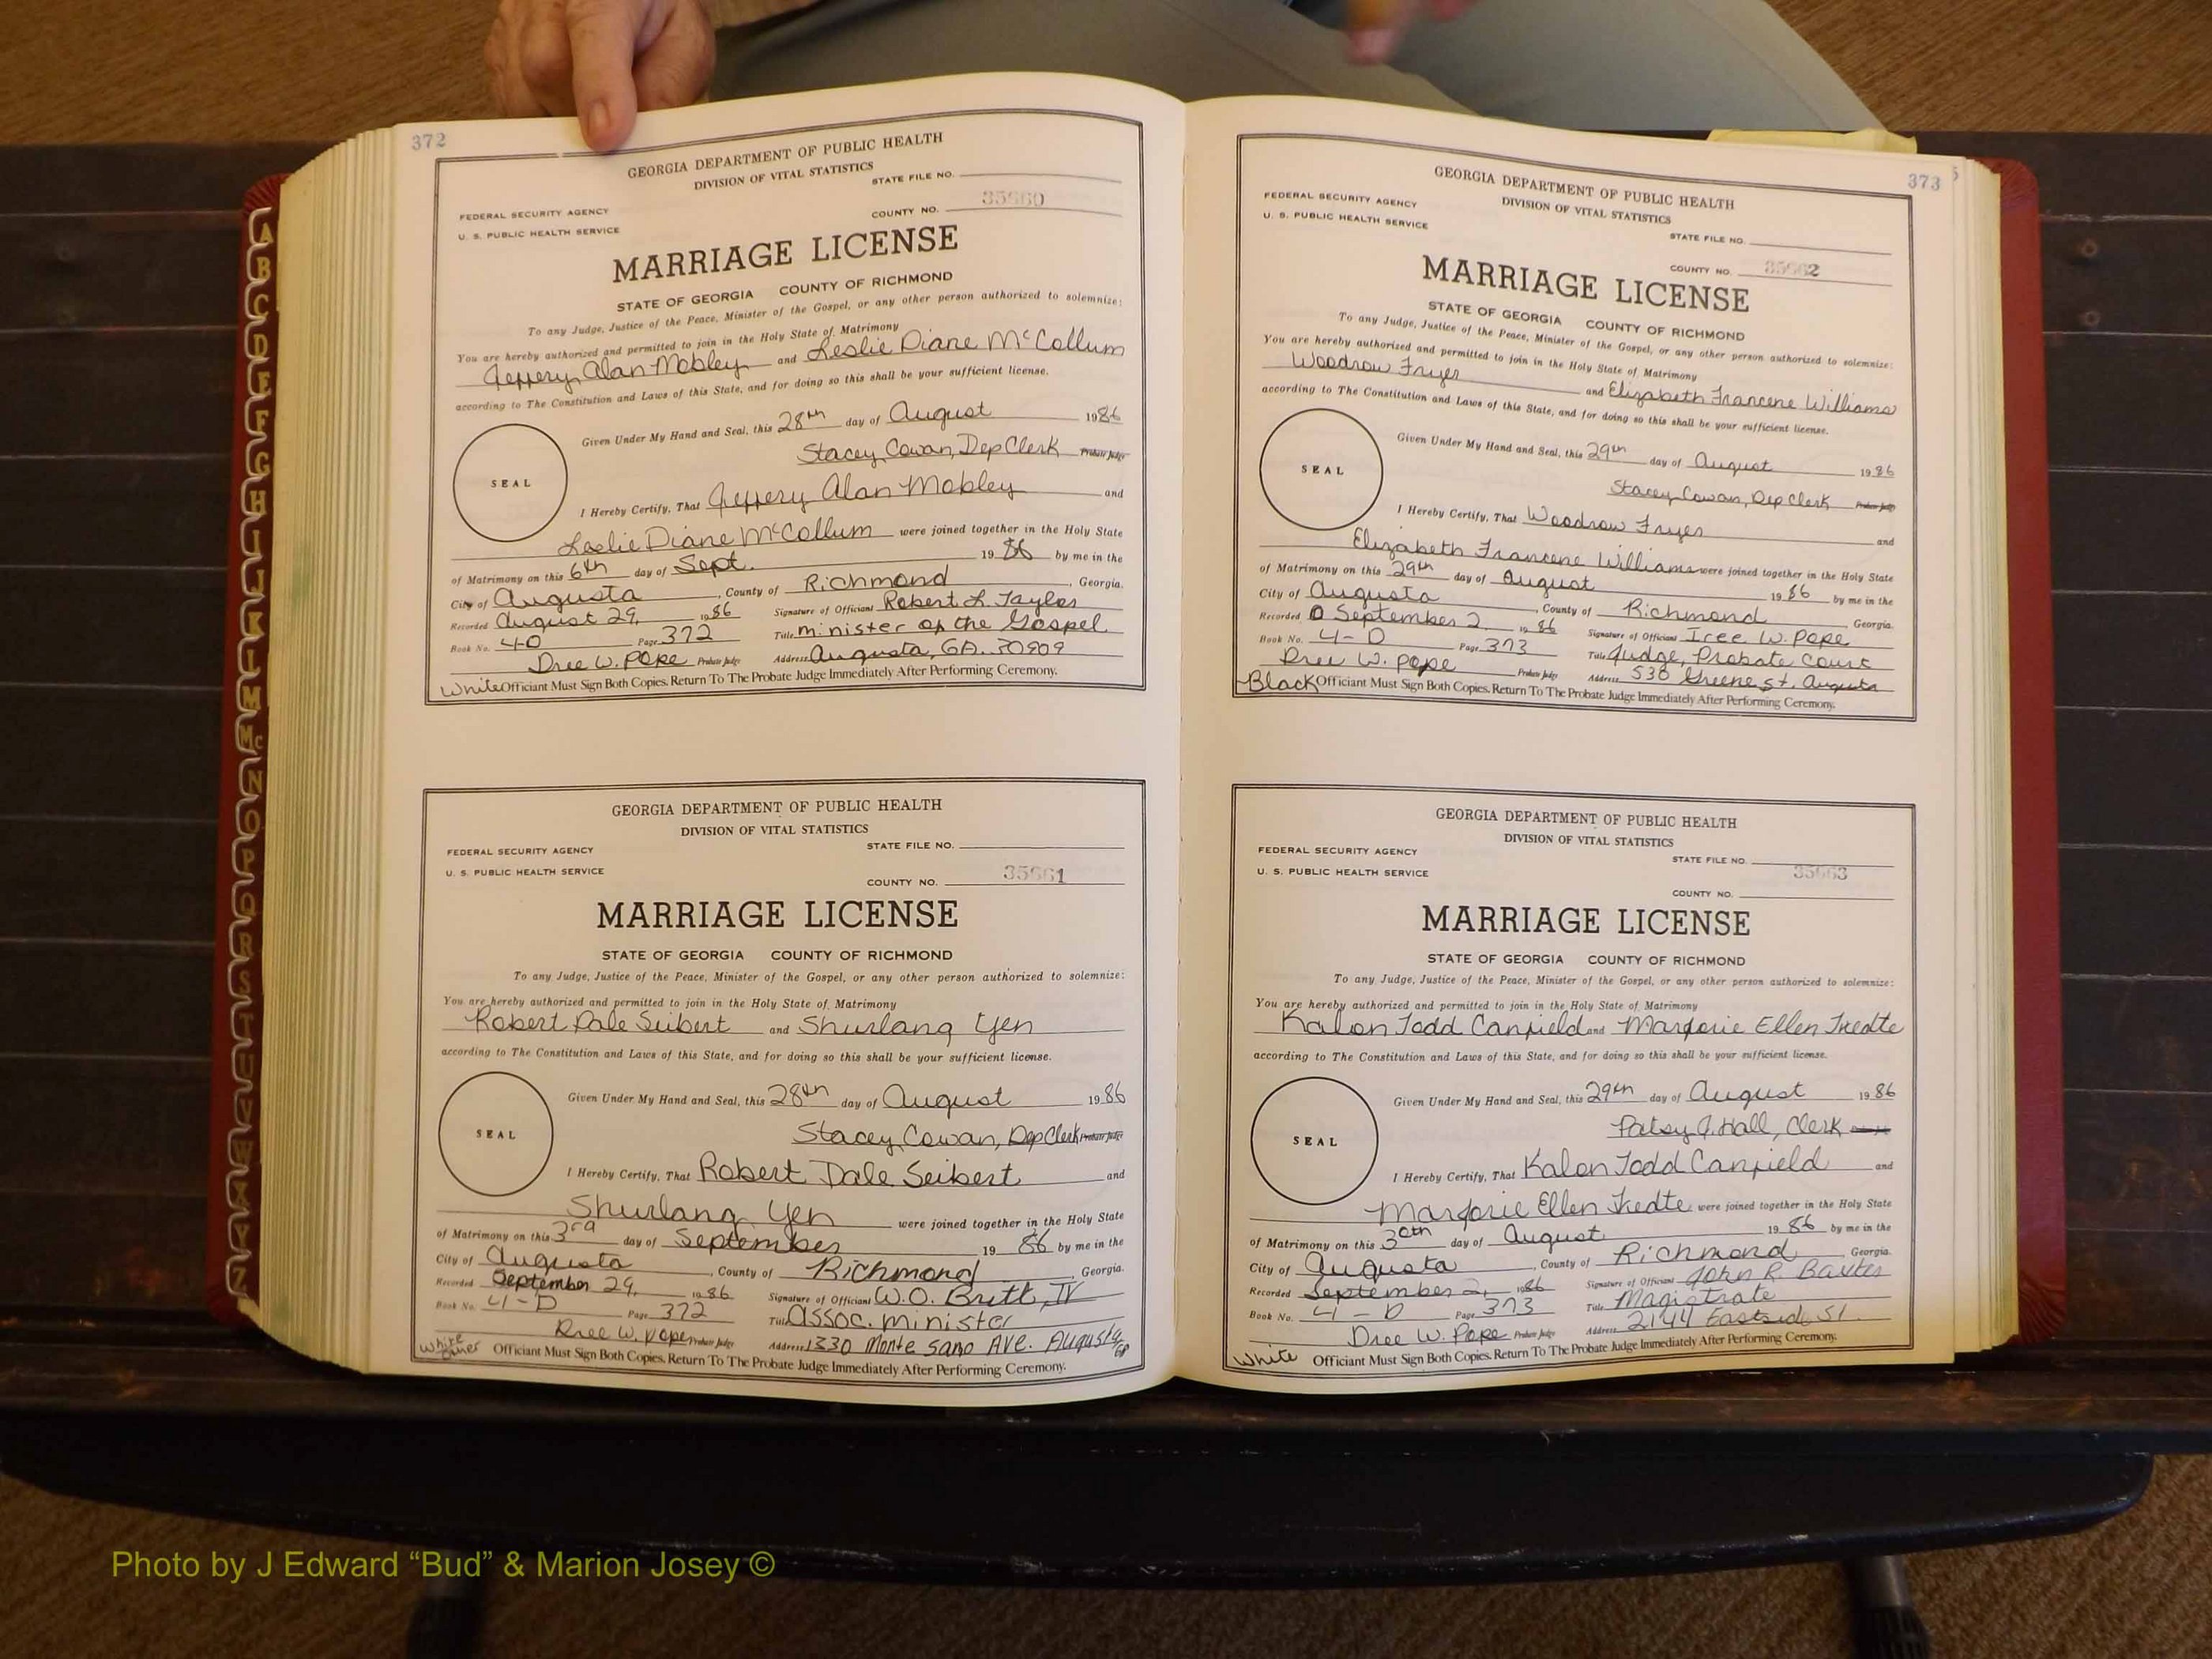 372
GEORGIA DEPARTMENT OF PUBLIC HEALTH
DIVISION OF VITAL STATISTICS
STATE FILE NO.
FEDERAL SECURITY AGENCY
U. S. PUBLIC HEALTH SERVICE
COUNTY NO. 35660
MARRIAGE LICENSE
STATE OF GEORGIA COUNTY OF RICHMOND
To any Judge, Justice of the Peace, Minister of the Gospel, or any other person authorized to solemnize:
You are hereby authorized and permitted to join in the Holy State of Matrimony
Jeffery Alan Mobley and Leslie Diane McCollum
according to The Constitution and Laws of this State, and for doing so this shall be your sufficient license.
Given Under My Hand and Seal, this 28th day of August 1986
Stacey Cowan, Dep Clerk Probate Judge
SEAL
I Hereby Certify, That Jeffery Alan Mobley and
Leslie Diane McCollum were joined together in the Holy State
of Matrimony on this 6th day of Sept. 19 86 by me in the
City of Augusta, County of Richmond, Georgia.
Recorded August 29, 1986 Signature of Officiant Robert L. Taylor
Book No. 4-D Page 372 Title Minister of the Gospel
Dree W. Pope Probate Judge Address Augusta, GA. 30909
White Officiant Must Sign Both Copies. Return To The Probate Judge Immediately After Performing Ceremony.
GEORGIA DEPARTMENT OF PUBLIC HEALTH
DIVISION OF VITAL STATISTICS
STATE FILE NO.
FEDERAL SECURITY AGENCY
U. S. PUBLIC HEALTH SERVICE
COUNTY NO. 35661
MARRIAGE LICENSE
STATE OF GEORGIA COUNTY OF RICHMOND
To any Judge, Justice of the Peace, Minister of the Gospel, or any other person authorized to solemnize:
You are hereby authorized and permitted to join in the Holy State of Matrimony
Robert Dale Seibert and Shurlang Yen
according to The Constitution and Laws of this State, and for doing so this shall be your sufficient license.
Given Under My Hand and Seal, this 28th day of August 1986
Stacey Cowan, Dep Clerk Probate Judge
SEAL
I Hereby Certify, That Robert Dale Seibert and
Shurlang Yen were joined together in the Holy State
of Matrimony on this 3rd day of September 19 86 by me in the
City of Augusta, County of Richmond, Georgia.
Recorded September 29, 1986 Signature of Officiant W.O. Britt, IV
Book No. 4-D Page 372 Title Assoc. minister
Dree W. Pope Probate Judge Address 1330 Monte Sano Ave. Augusta
White Officiant Must Sign Both Copies. Return To The Probate Judge Immediately After Performing Ceremony.
373
GEORGIA DEPARTMENT OF PUBLIC HEALTH
DIVISION OF VITAL STATISTICS
FEDERAL SECURITY AGENCY
U. S. PUBLIC HEALTH SERVICE
STATE FILE NO.
COUNTY NO. 35662
MARRIAGE LICENSE
STATE OF GEORGIA COUNTY OF RICHMOND
To any Judge, Justice of the Peace, Minister of the Gospel, or any other person authorized to solemnize:
You are hereby authorized and permitted to join in the Holy State of Matrimony
Woodrow Fryer and Elizabeth Francene Williams
according to The Constitution and Laws of this State, and for doing so this shall be your sufficient license.
Given Under My Hand and Seal, this 29th day of August 1986
Stacey Cowan, Dep Clerk Probate Judge
SEAL
I Hereby Certify, That Woodrow Fryer and
Elizabeth Francene Williams were joined together in the Holy State
of Matrimony on this 29th day of August 1986 by me in the
City of Augusta, County of Richmond, Georgia.
Recorded September 2, 1986 Signature of Officiant Iree W. Pope
Book No. 4-D Page 373 Title Judge, Probate Court
Dree W. Pope Probate Judge Address 530 Greene St. Augusta
Black Officiant Must Sign Both Copies. Return To The Probate Judge Immediately After Performing Ceremony.
GEORGIA DEPARTMENT OF PUBLIC HEALTH
DIVISION OF VITAL STATISTICS
FEDERAL SECURITY AGENCY
STATE FILE NO.
U. S. PUBLIC HEALTH SERVICE
35663
COUNTY NO.
MARRIAGE LICENSE
STATE OF GEORGIA COUNTY OF RICHMOND
To any Judge, Justice of the Peace, Minister of the Gospel, or any other person authorized to solemnize:
You are hereby authorized and permitted to join in the Holy State of Matrimony
Kalon Todd Canfield and Marjorie Ellen Tredte
according to The Constitution and Laws of this State, and for doing so this shall be your sufficient license.
Given Under My Hand and Seal, this 29th day of August 1986
Patsy J. Hall, Clerk
SEAL
I Hereby Certify, That Kalon Todd Canfield and
Marjorie Ellen Tredte were joined together in the Holy State
of Matrimony on this 30th day of August 1986 by me in the
City of Augusta, County of Richmond, Georgia.
Recorded September 2, 1986 Signature of Officiant John R. Baxter
Book No. 4-D Page 373 Title Magistrate
Dree W. Pope Probate Judge Address 2144 Eastside St.
White Officiant Must Sign Both Copies. Return To The Probate Judge Immediately After Performing Ceremony.
A
B
C
D
E
F
G
H
I
J
K
L
M
Mc
N
O
P
Q
R
S
T
U
V
W
X
Y
Z
Photo by J Edward “Bud” & Marion Josey ©